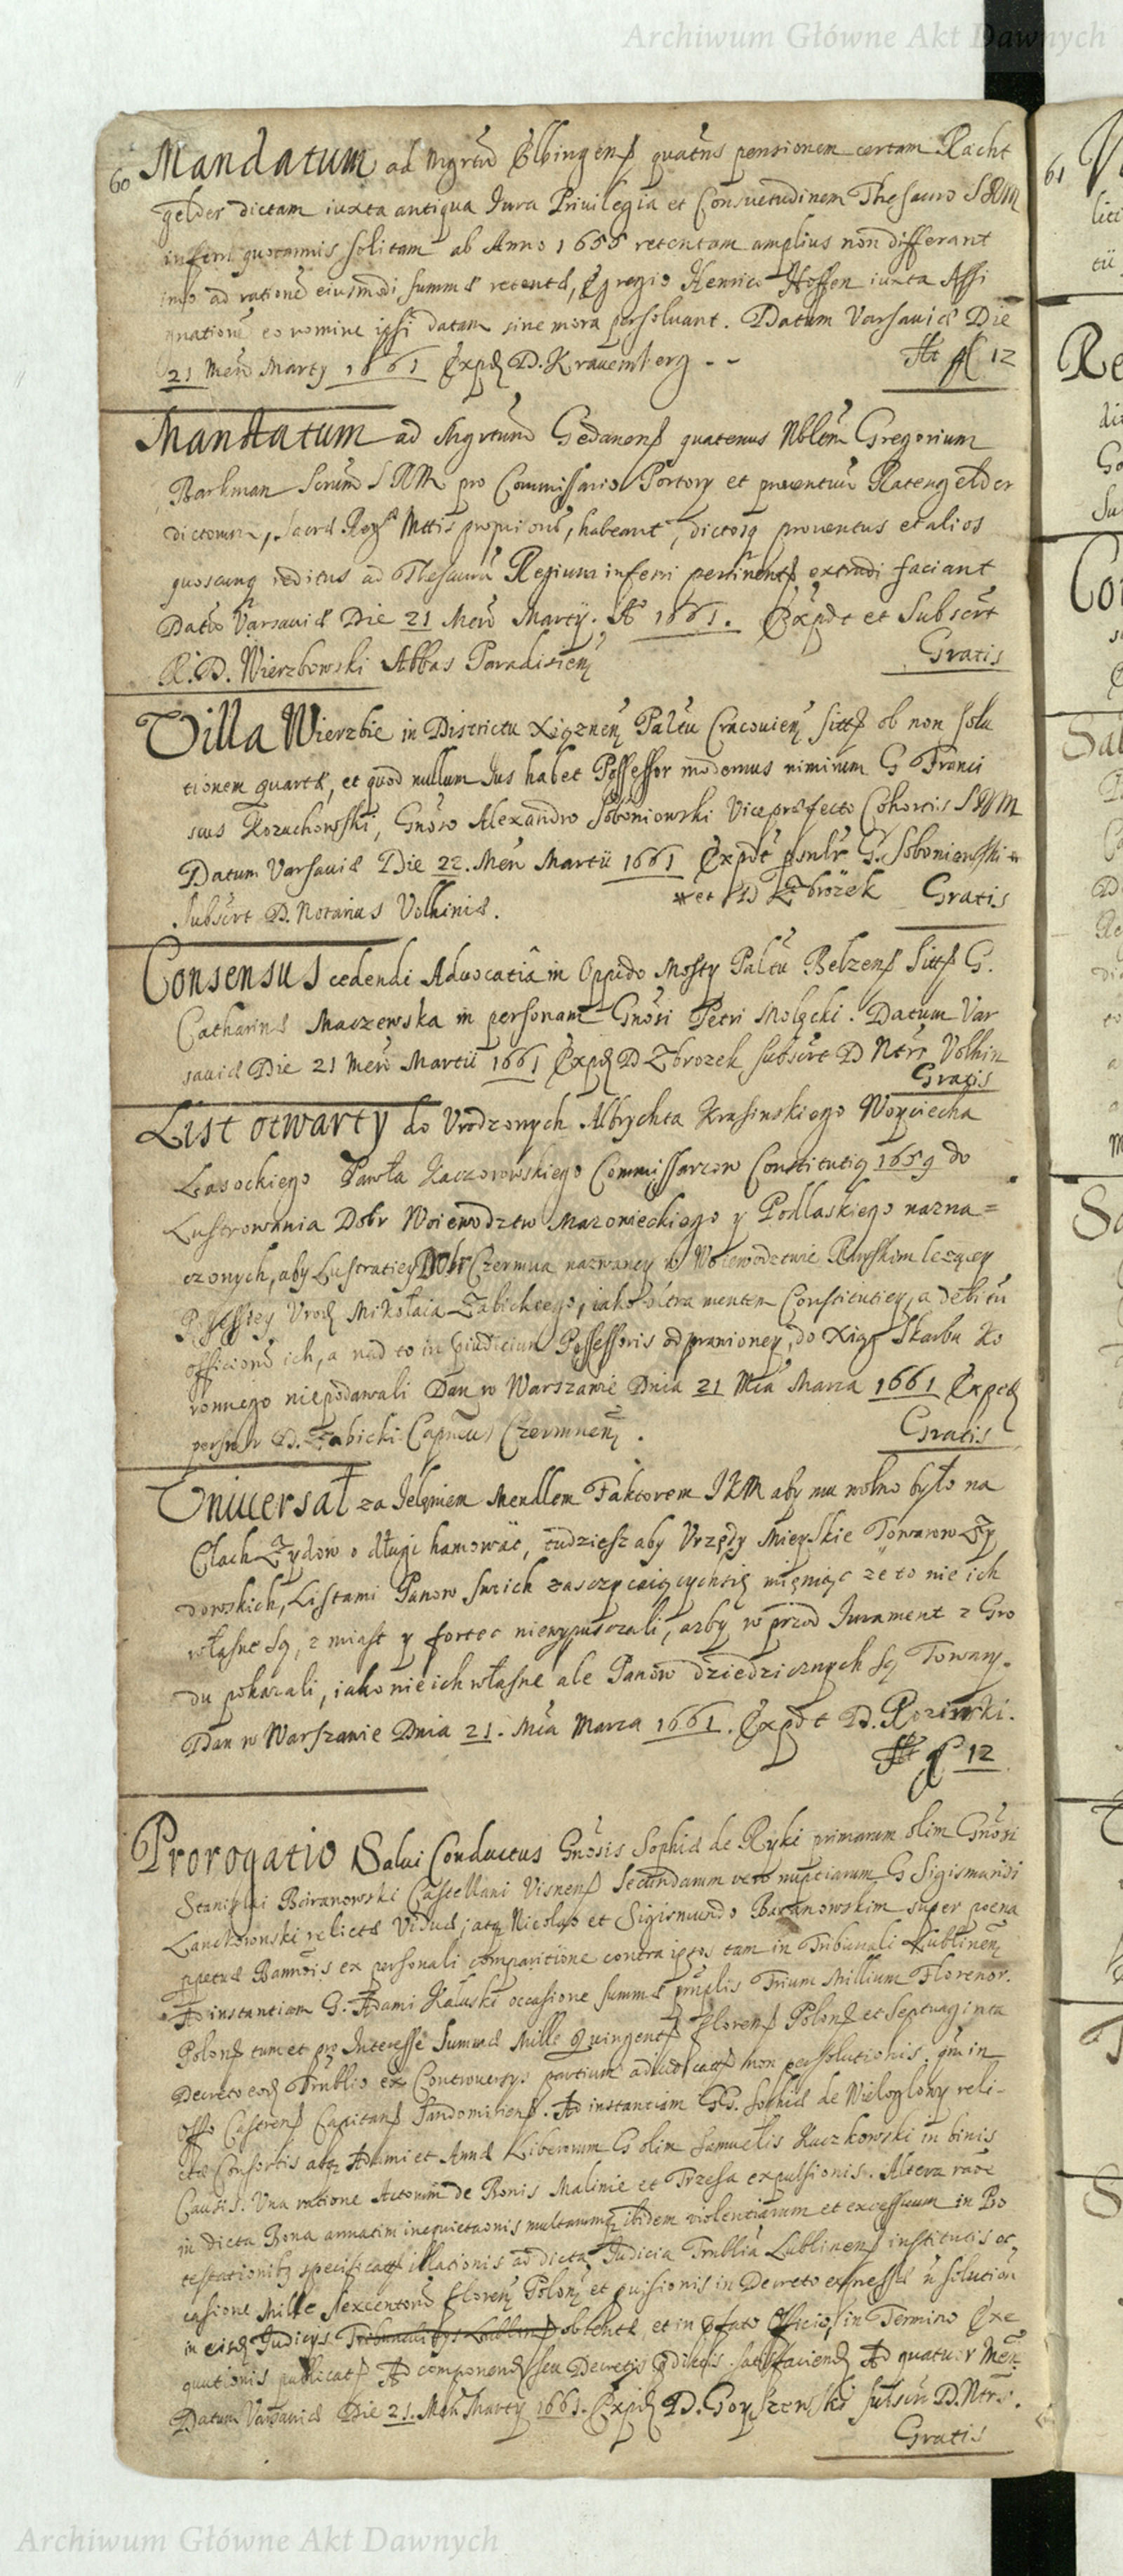 Archiwum Główne Akt Dawnych
60 Mandatum ad Mgrtũ Elbingenß quatũs pensionem certam Racht
gelder dictam iuxta antiqua Jura Privilegia et Consuetudinem Thesauro SRM
inferri quotannis solitam ab Anno 1655 retentam amplius non differant
imo ad rationẽ eiusmodi summæ retentæ, Egregio Henrico Hoffen iuxta Assi
gnationẽ eo nomine ipsi datam sine mora persoluant. Datum Varsauiæ Die
21 Meñ Marty 1661 Expd D. Krauemberg - -
12
Mandatum ad Mgrtum Gedanenß quatenus Nblem Gregorium
Barkman Scrũm SRM pro Commissario Portory et prouentuũ Ratengelder
dictorum, Sacræ Regæ Mttis proprioru, habeant, dictosq prouentus et alios
quoscunq reditus ad Thesaurũ Regium inferri pertinentß extradi faciant
Datũ Varsauiæ Die 21 Meñ Martÿ. Aº 1661. Expdt et Subscrt
R. D. Wierzbowski Abbas Paradisieñ
Gratis
Villa Wierzbie in Districtu Xiąznen Paltu Cracouien sittß ob non solu
tionem quartæ, et quod nullum Jus habet Possessor modernus nimirum G Franci
scus Kozuchowski, Gnoso Alexandro Soboniowski Viceprefecto Cohortis SRM
Datum Varsauiæ Die 22. Meñ Martii 1661 Expdt psnlr G. Soboniowski *
* et D Zbrożek Gratis
Subscrt D. Notarius Volhiniæ.
Consensus cedendi Aduocatiâ in Oppido Mosty Paltu Belzenß Sittß G.
Catharinæ Maczewska in personam Gnosi Petri Molęcki. Datum Var
sauiæ Die 21 Meñ Martii 1661 Expd D Zbrozek subscrt D Ntrs Volhin
Gratis
List otwarty do Vrodzonych Albrychta Krasinskiego Woyciecha
Lasockiego Pawła Kaczorowskiego Commissarzow Constitutią 1659 do
Lustrowania Dobr Woiewodztw Mazowieckiego y Podlaskiego nazna=
czonych, aby Lustratiey Dobr Czermna nazwaney w Woiewodztwie Rawskim lezący
Possessiey Vrod Mikołaia Zabickiego, iako vltra mentem Constitutiey, a debitũ
officioru ich, a nad to in præiudicium Possessoris odprawioney, do Xiąg Skarbu Ko
ronnego niepodawali Dan w Warszawie Dnia 21 Mca Marca 1661 Expd
persnlr D. Zabicki Capneus Czermneñ.
Gratis
Vniuersał za Jelęniem Mendlem Faktorem JKM aby mu wolno było na
Cłach Zydow o długi hamowác, tudziesz aby Vrzędy Mieyskie Towarow Zy
dowskich, Listami Panow swich zasczycaiących się mięniąc że to nie ich
własne są, z miast y fortec niewypuszczali, azby w przod Jurament z Gro
du pokazali, iako nie ich własne ale Panow dziedzicznych są Towary.
Dan w Warszawie Dnia 21. Mca Marca 1661. Expdt D.
12
Prorogatio Salui Conductus Gnosis Sophiæ de Ryki primarum olim Gnosi
Stanislai Baranowski Castellani Visnenß Secundarum vero nuptiarum G Sigismundi
Lanckowonski relictæ Viduæ, atq Nicolao et Sigismundo Baranowskim super poena
ppetuæ Bannois ex personali comparitione contra ipsos tam in Tribunali Lublinen
Ad instantiam G. Adami Kaluski occasione summæ pnplis Trium Millium Florenor.
Polonß tum et pro Interesse Summæ Mille Quingentß Florenß Polonß et Septuaginta
Decreto eod Trnblis ex Controuersys partium adiudicatß non persolutionis, qm in
Offo Castrenß Capitanß Sandomirienß. Ad instantiam GG. Sophiæ de Wieloglowy reli-
ctæ Consortis atq Adami et Annæ Liberorum G olim Samuelis Kaczkowski in binis
Causis. Vna ratione Actorum de Bonis Malinie et Trzesn expulsionis. Altera raoe
in dicta Bona annatim inequietaonis multarumq ibidem violentiarum et excessuum in Pro
testationibq specificatß illationis ad dicta Judicia Trnblia Lublinenß institutis oc,
casione Mille Sexcentoru Floren Polon et quisionis in Decreto expressis ñ solutiõn
in eisd Judicijs obtentæ, et in pfato Officio, in Termino Exe
quutionis publicatß Ad componend seu Decretis pdictis satisfaciend Ad quatuor Men
Datum Varsauiæ Die 21. Meñ Marty 1661. Expd D. Goyszewski subscrt D. Ntrs.
Gratis
61
Archiwum Główne Akt Dawnych